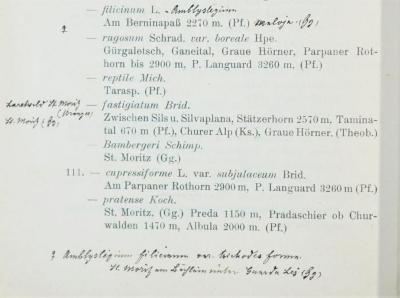 — filicinum L. - Amblystegium
Am Berninapaß 2270 m. (Pf.) Maloja (Gg)
— rugosum Schrad. var. boreale Hpe.
Gürgaletsch, Ganeital, Graue Hörner, Parpaner Rot-
horn bis 2900 m, P. Languard 3260 m. (Pf.)
— reptile Mich.
Tarasp. (Pf.)
Lärchwald St. Moritz — fastigiatum Brid.
Zwischen Sils u. Silvaplana, Stätzerhorn 2570 m, Tamina-
St. Moritz (Gg) tal 670 m (Pf.), Churer Alp (Ks.), Graue Hörner. (Theob.)
— Bambergeri Schimp.
St. Moritz (Gg.)
111. — cupressiforme L. var. subjulaceum Brid.
Am Parpaner Rothorn 2900 m, P. Languard 3260 m (Pf.)
— pratense Koch.
St. Moritz. (Gg.) Preda 1150 m, Pradaschier ob Chur-
walden 1470 m, Albula 2000 m. (Pf.)
? Amblystegium filicinum var. forma
St. Moritz am unter (Gg)